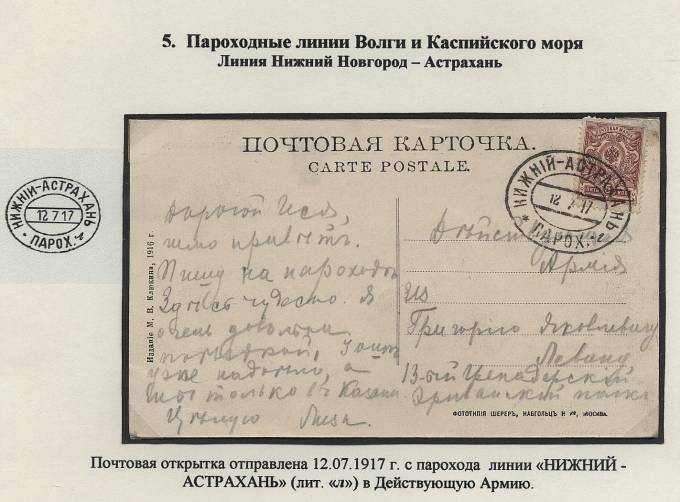 5. Пароходные линии Волги и Каспийского моря
Линия Нижний Новгород – Астрахань
ПОЧТОВАЯ КАРТОЧКА.
CARTE POSTALE.
НИЖНІЙ-АСТРАХАНЬ
12 7 17
* ПАРОХ. л
НИЖНІЙ-АСТРАХАНЬ
12 7 17
* ПАРОХ. л
Изданіе М. В. Клюкина, 1916 г.
Дорогой Ися,
шлю привѣтъ.
Пишу на пароходѣ
Здѣсь чудесно. Я
очень довольна
поѣздкой,
уже надоѣло, а
только Казани
Цѣлую Лиза.
Дѣйствующая
Армія
Григорію Яковлевичу
Левину
13-ый Гренадерскій
Эриванскій полкъ
ФОТОТИПІЯ ШЕРЕРЪ, НАБГОЛЬЦЪ И Ко, МОСКВА.
Почтовая открытка отправлена 12.07.1917 г. с парохода линии «НИЖНИЙ -
АСТРАХАНЬ» (лит. «л») в Действующую Армию.